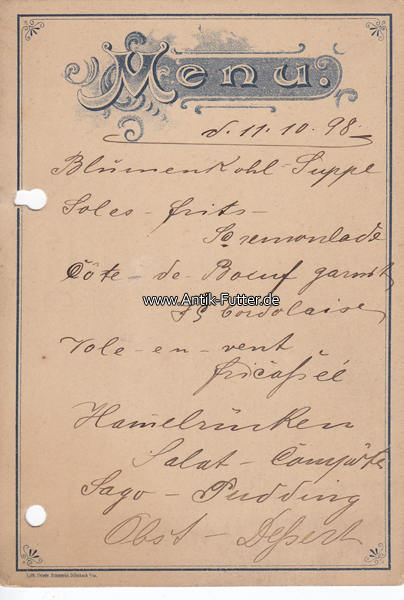 Menu.
d. 11.10.98
Blŭmenkohl-Suppe
Soles - frits -
Sc remoulade
Côte - de - Boeuf garnit
www.Antik-Futter.de
Sc bordelaise
Vole - en - vent
fricaßée
Hamelrücken
Salat - Compôte
Sago - Pudding
Obst - Deßert